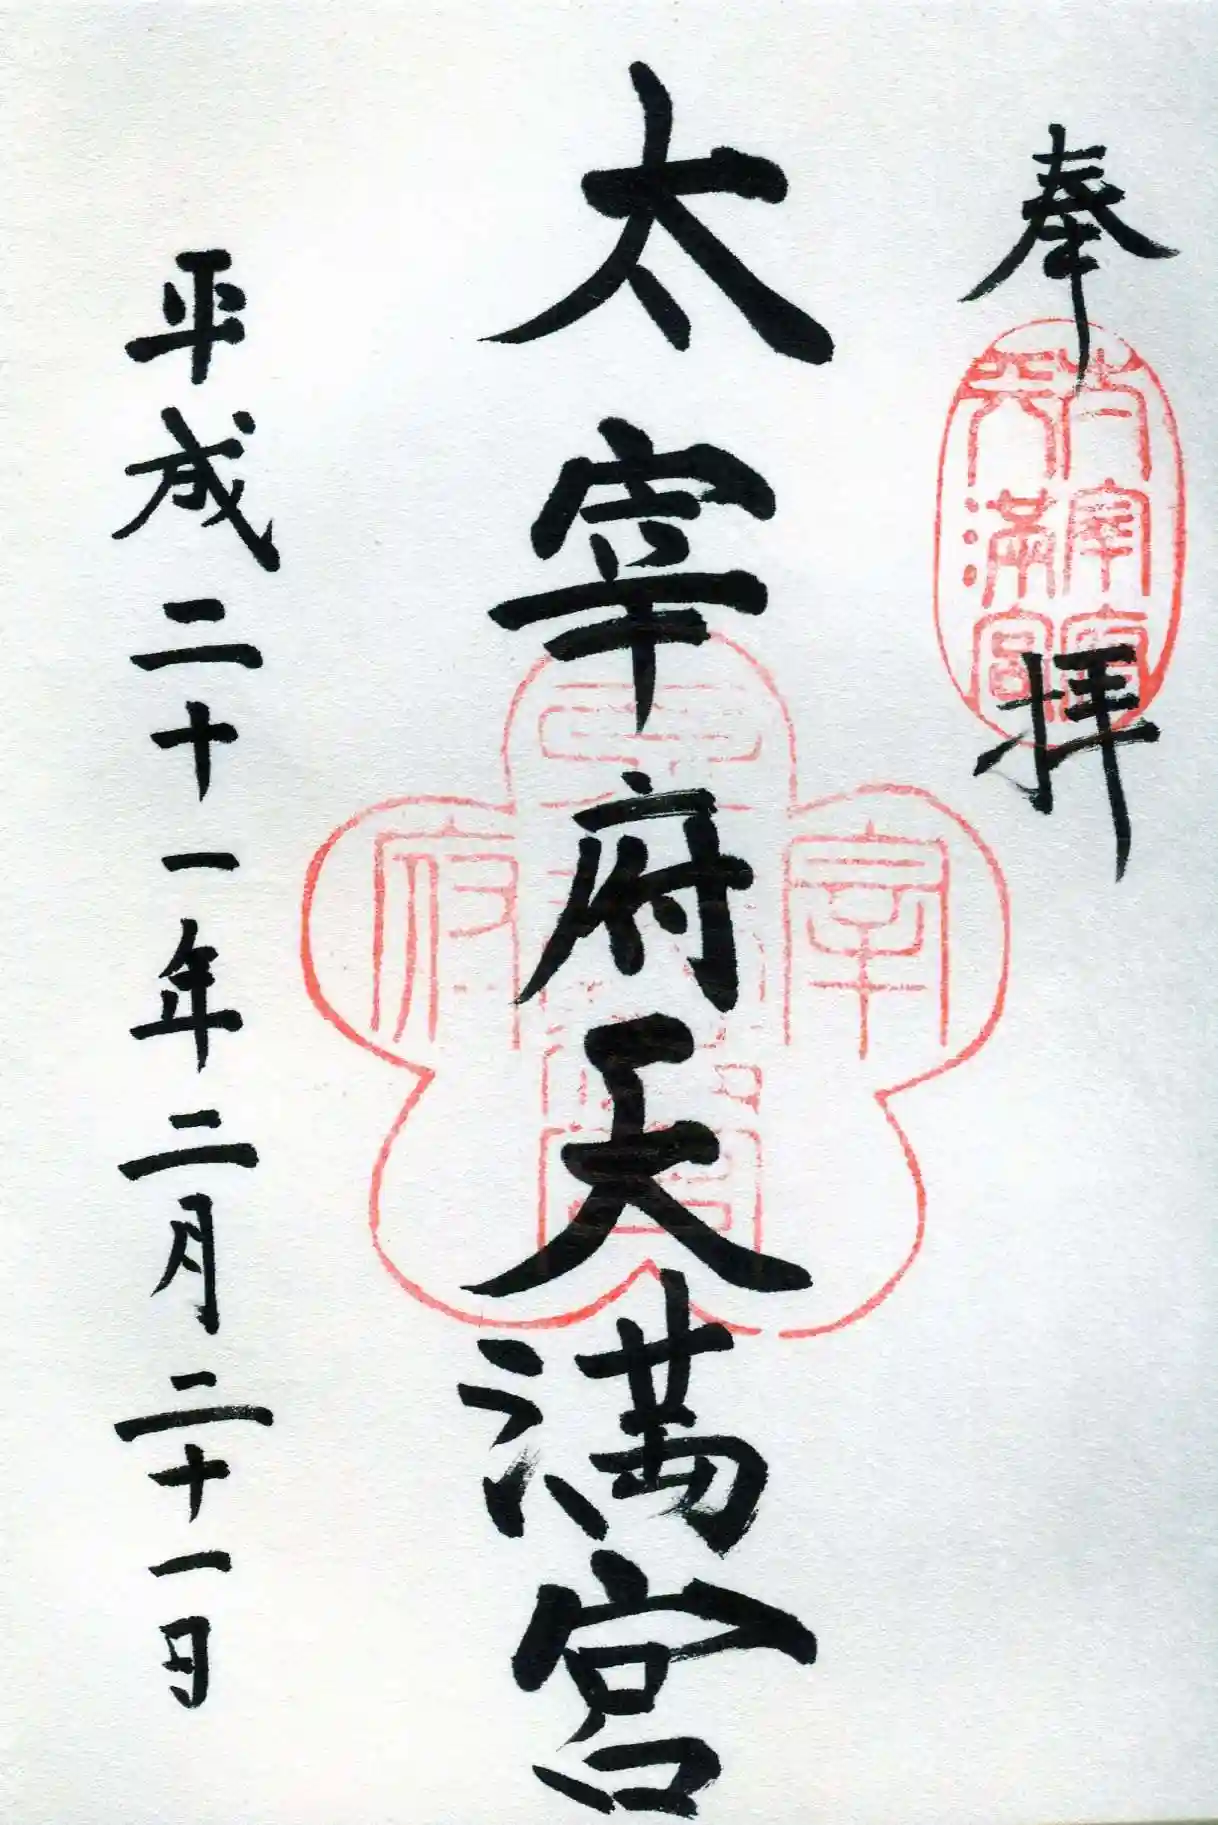 奉拝
太宰府天満宮
平成二十一年二月二十一日
太宰府
天満宮